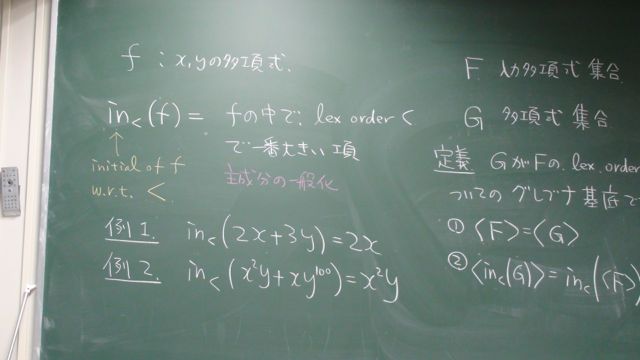 f : x,yの多項式.
in<(f) = fの中で; lex order <
で一番大きい項
initial of f
w.r.t. <.
主成分の一般化
例1. in<(2x+3y)=2x
例2. in<(x²y+xy¹⁰⁰)=x²y
F 入力多項式 集合
G 多項式 集合
定義 GがFの. lex. order
ついての グレブナ 基底で
① ⟨F⟩=⟨G⟩
② ⟨in<(G)⟩=in<(⟨F⟩